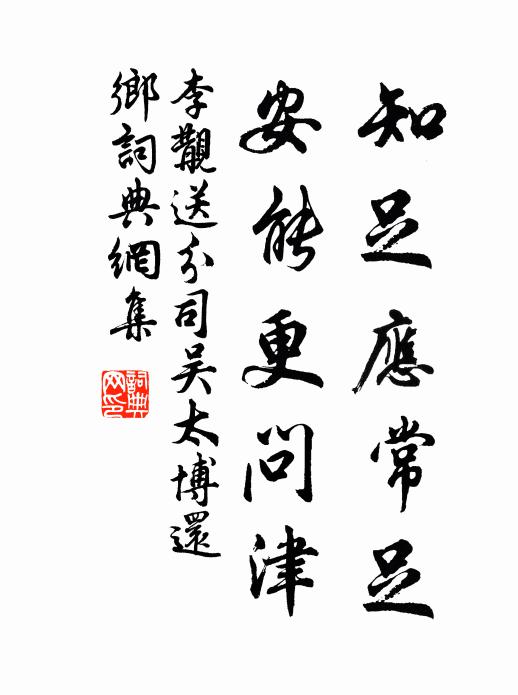 知足應常足
安能更問津
李覯送分司吴太博還
鄉詞典網集
詞典
网印